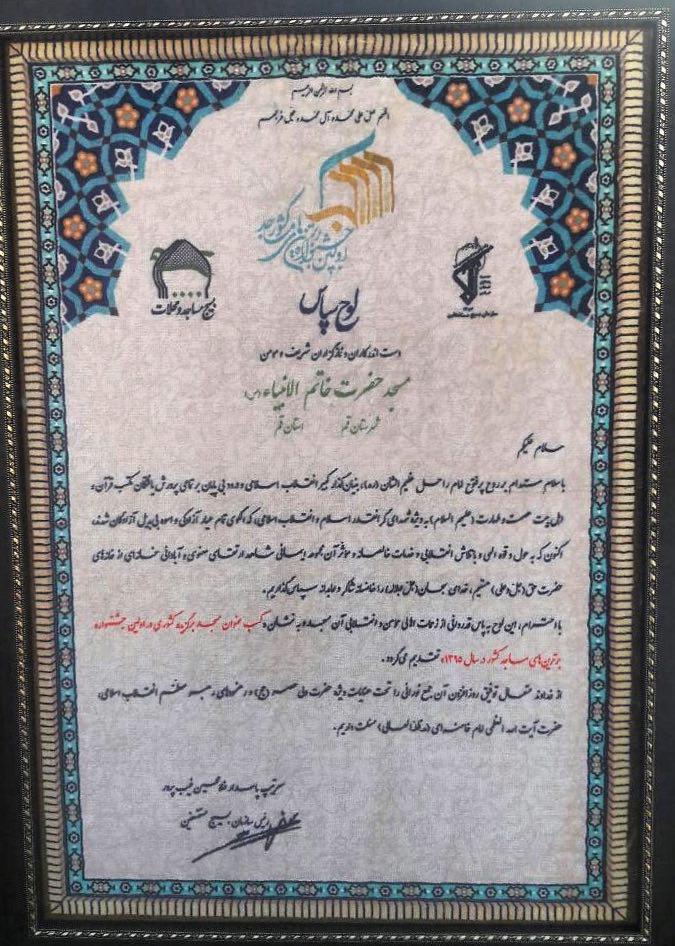 بسم الله الرحمن الرحیم
اللهم صل علی محمد و آل محمد و عجل فرجهم
اولین جشنواره برترین های مساجد کشور
بسیج مساجد و محلات
لوح سپاس
دست اندرکاران و نمازگزاران شریف و مومن
مسجد حضرت خاتم الانبیاء (ص)
شهرستان قم استان قم
سلام علیکم
با سلام مستدام بر روح پرفتوح امام راحل عظیم الشان (ره)، بنیانگذار کبیر انقلاب اسلامی و درود بی پایان بر تمامی پرورش یافتگان مکتب قرآن و
اهل بیت عصمت و طهارت (علیهم السلام) به ویژه شهدای گرانقدر اسلام و انقلاب اسلامی، که الگوی تمام عیار آزادگی و اسوه بی بدیل آزادگان شدند،
اکنون که به حول و قوه الهی و با تلاش انقلابی و خدمات خالصانه و مؤثر آن مجموعه ایمانی شاهد ارتقای معنوی و آبادانی خانه ای از خانه های
حضرت حق (جل و علی) هستیم، خدای سبحان (جل جلاله) را خاضعانه شاکر و عابدانه سپاس گذاریم.
با احترام، این لوح به پاس قدردانی از زحمات اهالی مومن و انقلابی آن مسجد و به نشان «کسب عنوان مسجد برگزیده کشوری در اولین جشنواره
برترین های مساجد کشور در سال ۱۳۹۵» تقدیم می گردد.
از خداوند متعال توفیق روزافزون آن جمع نورانی را تحت عنایات ویژه حضرت ولی عصر (عج) و رهنمودهای رهبر معظم انقلاب اسلامی،
حضرت آیت الله العظمی امام خامنه ای (مدظله العالی) مسئلت داریم.
سرتیپ پاسدار غلامحسین غیب پرور
رئیس سازمان بسیج مستضعفین